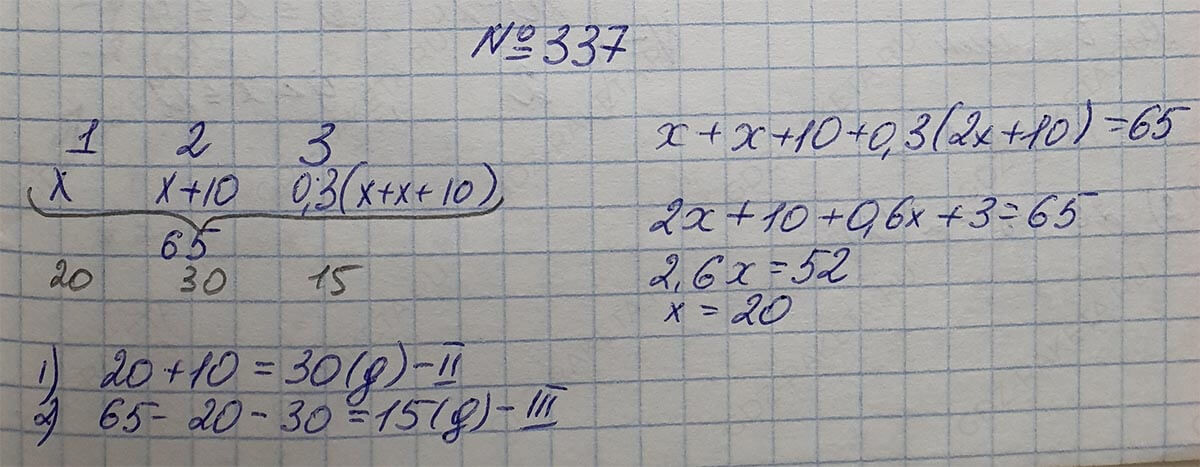 №337
1 2 3
x x+10 0,3(x+x+10)
65
20 30 15
x+x+10+0,3(2x+10)=65
2x+10+0,6x+3=65
2,6x=52
x=20
1) 20+10=30(g)-II
2) 65-20-30=15(g)-III